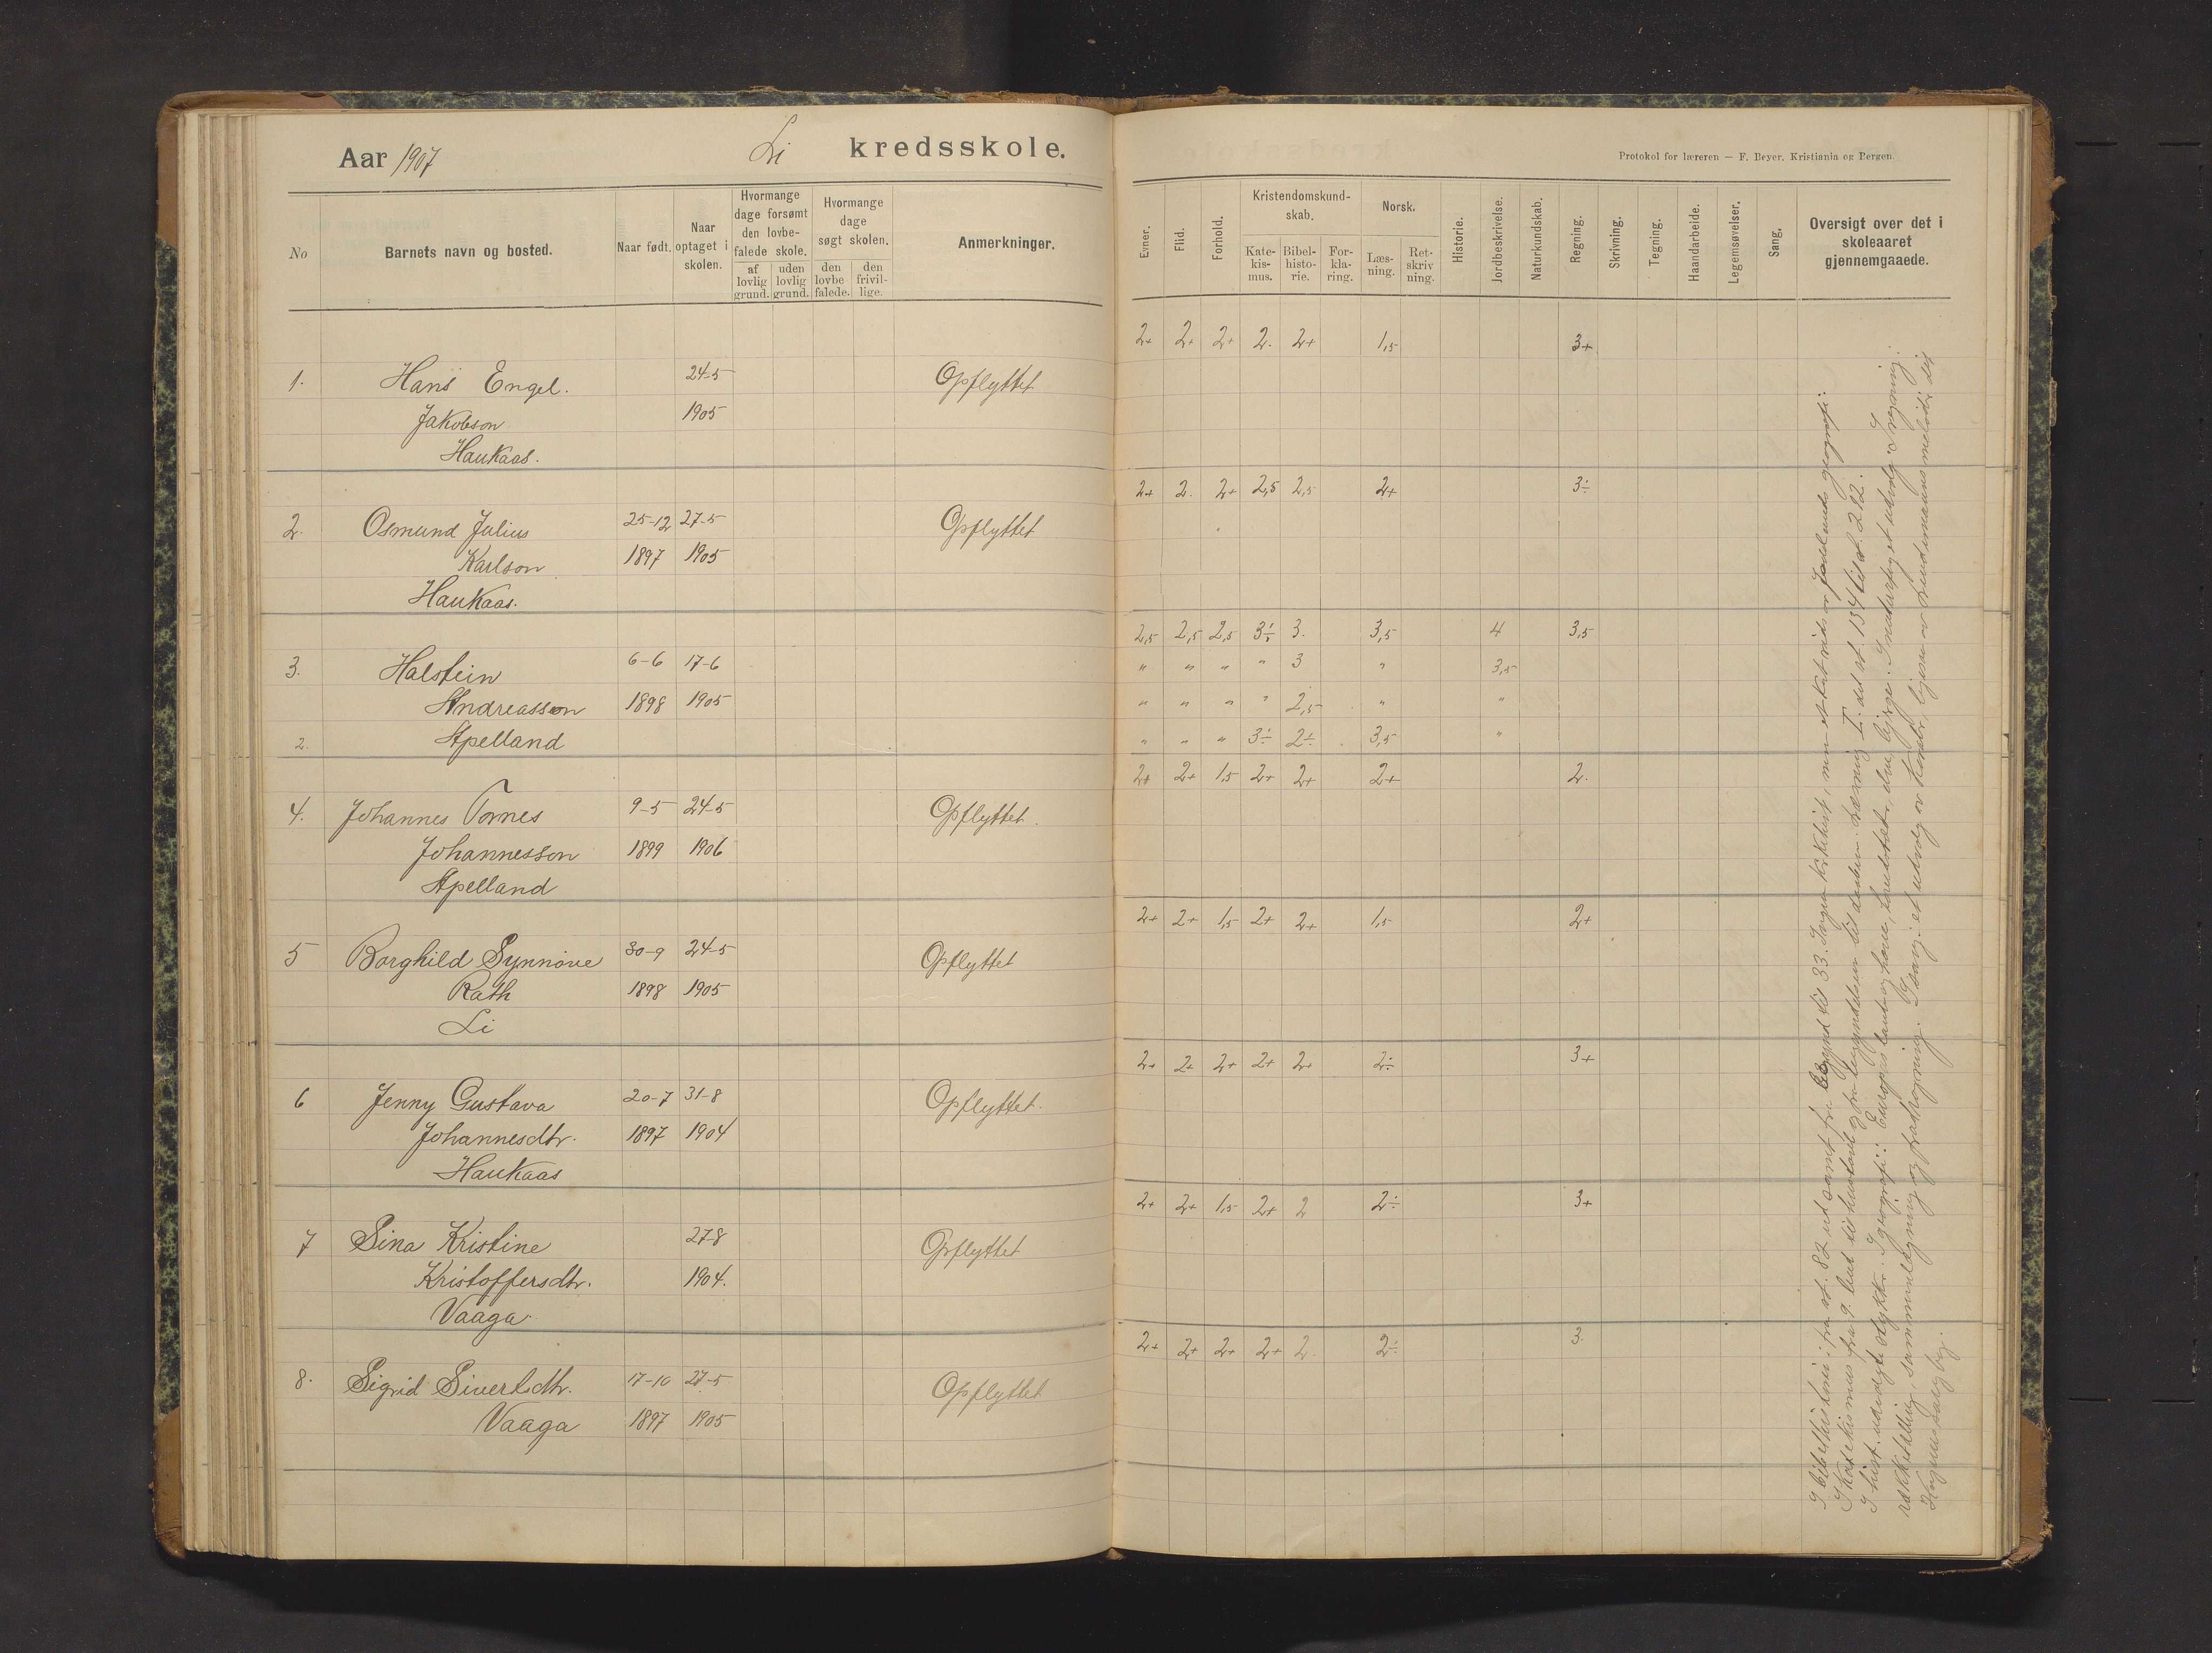 Aar 1907 Li kredsskole.
No
Barnets navn og bosted.
Naar født.
Naar optaget i skolen.
Hvormange dage forsømt den lovbefalede skole.
af lovlig grund.
uden lovlig grund.
Hvormange dage søgt skolen.
den lovbefalede.
den frivillige.
Anmerkninger.
1. Hans Engel. 24-5 Opflyttet
Jakobson 1905
Haukaas.
2. Osmund Julius 25-12 27-5 Opflyttet
Karlson 1897 1905
Haukaas.
3. Halstein 6-6 17-6
Andreasson 1898 1905
2. Apelland
4. Johannes Tornes 9-5 24-5 Opflyttet.
Johannesson 1899 1906
Apelland
5 Borghild Synnøve 30-9 24-5 Opflyttet
Rath 1898 1905
Li
6 Jenny Gustava 20-7 31-8 Opflyttet.
Johannesdtr. 1897 1904
Haukaas
7 Sina Kristine 27-8 Opflyttet
Kristoffersdtr. 1904.
Vaaga.
8. Sigrid Sivertsdtr. 17-10 27-5 Opflyttet
Vaaga 1897 1905
Protokol for læreren — F. Beyer. Kristiania og Bergen.
Evner.
Flid.
Forhold.
Kristendomskundskab.
Katekismus.
Bibelhistorie.
Forklaring.
Norsk.
Læsning.
Retskrivning.
Historie.
Jordbeskrivelse.
Naturkundskab.
Regning.
Skrivning.
Tegning.
Haandarbeide.
Legemsøvelser.
Sang.
Oversigt over det i skoleaaret gjennemgaaede.
2+ 2+ 2+ 2. 2+ 1,5 3+
2+ 2. 2+ 2,5 2,5 2+ 3÷
2,5 2,5 2,5 3÷ 3. 3,5 4 3,5
" " " " 3 " 3,5
" " " " 2,5 " "
" " " 3÷ 2÷ 3,5 "
2+ 2+ 1,5 2+ 2+ 2+ 2.
2+ 2+ 1,5 2+ 2+ 1,5 2+
2+ 2+ 2+ 2+ 2+ 2÷ 3+
2+ 2+ 1,5 2+ 2 2÷ 3+
2+ 2+ 2+ 2+ 2. 2÷ 3.
I bibelhistorie: fra st. 82 ud samt fra begynd til 33. Ingen kirkehist, men
I katekismus fra 9. bud til husstand og fra begyndelsen til daaben. Læsning I. del st. 134 til st. 212.
I hist. udvalgte stykker. I geografi: Europas lande og have,
rækketælling, sammenlægning og fradragning. I sang: et udvalg